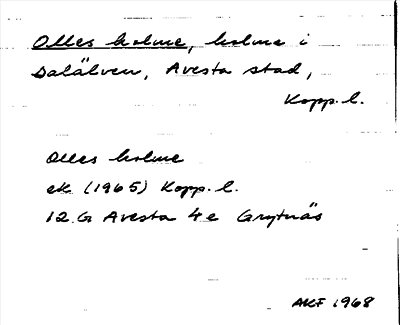 Olles holme, holme i
Dalälven, Avesta stad,
Kopp. l.
Olles holme
ek (1965) Kopp. l.
12 G Avesta 4e Grytnäs
AKF 1968